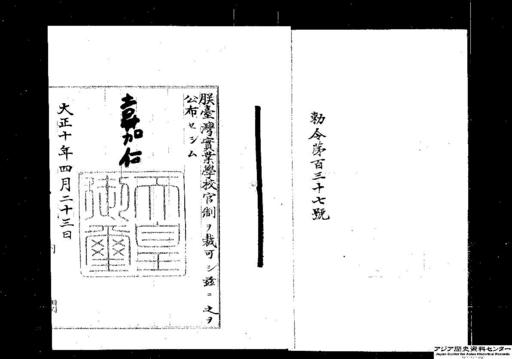 勅令第百三十七號
朕臺灣實業學校官制ヲ裁可シ茲ニ之ヲ
公布セシム
嘉仁
天皇御璽
大正十年四月二十三日
アジア歴史資料センター
Japan Center for Asian Historical Records